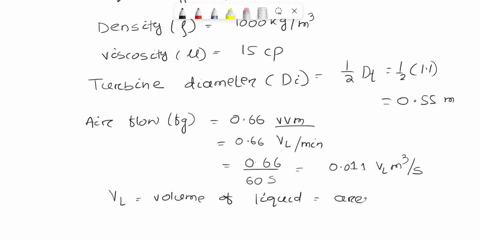 Density (ρ) = 1000 kg/m³
viscosity (μ) = 15 cp
Turbine diameter (Di) = 1/2 Dt = 1/2 (1.1)
= 0.55 m
Air flow (fg) = 0.66 vvm
= 0.66 VL/min
= 0.66/60 s = 0.011 VL m³/s
VL = volume of liquid = are